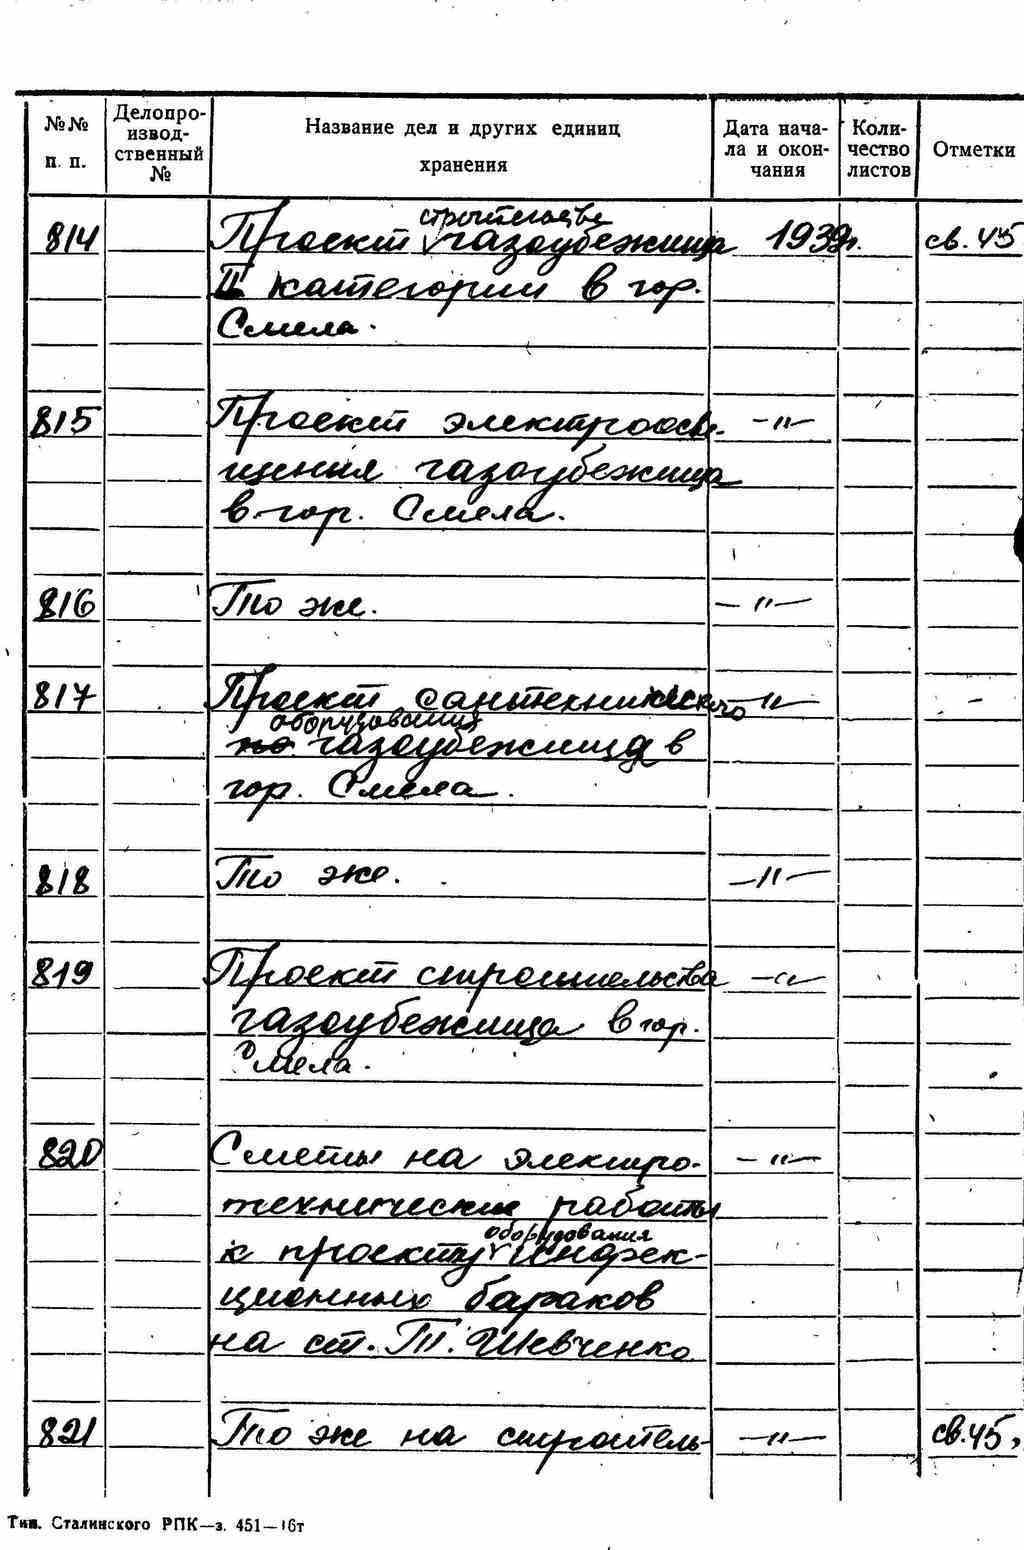 №№ п. п.
Делопро-
извод-
ственный
№
Название дел и других единиц
хранения
Дата нача-
ла и окон-
чания
Коли-
чество
листов
Отметки
строительства
814 Проект газоубежища 1939г. св. 45
II категории в гор.
Смела.
815 Проект электроосве- —"—
щения газоубежища
в гор. Смела.
816 То же. —"—
817 Проект сантехнического —"— -
оборудования
по газоубежища в
гор. Смела.
818 То же. —"—
819 Проект строительства —"—
газоубежища в гор.
Смела.
820 Сметы на электро- —"—
технические работы
оборудования
к проекту инфек-
ционных бараков
на ст. Т. Шевченко
821 То же на строитель- —"— св. 45,
Тип. Сталинского РПК—з. 451—16т